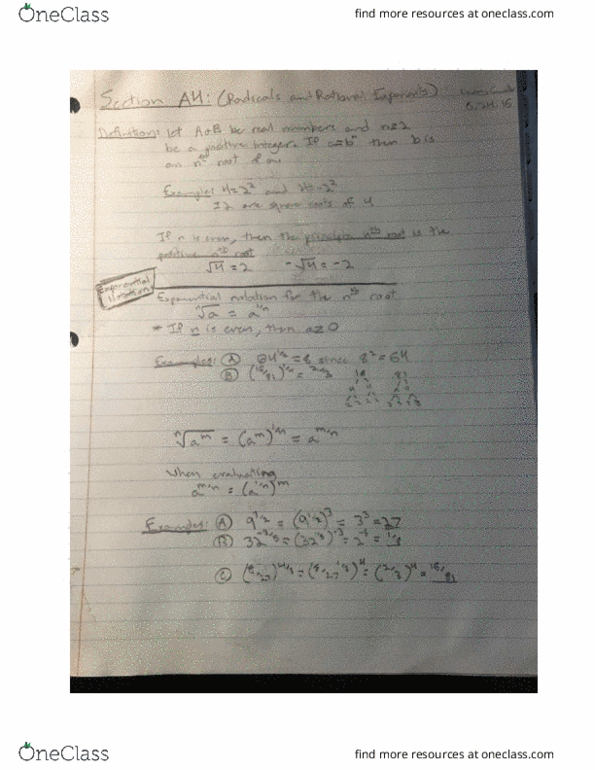 OneClass
find more resources at oneclass.com
Section A4: (Radicals and Rational Exponents)
5.24.16
Definition: Let A&B be real numbers and n≥2
be a positive integer. If a=bⁿ then b is
an nth root of a.
Examples: 4=2² and 4=-2²
±2 are square roots of 4
If n is even, then the principle nth root is the
positive nth root
√4=2 -√4=-2
Exponential Notation
Exponential notation for the nth root
ⁿ√a = a^1/n
If n is even, then a≥0
Examples: (A) 64^1/2 = 8 since 8²=64
(B) (16/81)^1/4 = 2/3
16 81
ⁿ√a^m = (a^m)^1/n = a^m/n
When evaluating
a^m/n = (a^1/n)^m
Examples: (A) 9^3/2 = (9^1/2)^3 = 3^3 = 27
(B) 32^-3/5 = (32^1/5)^-3 = 2^-3 = 1/8
(C) (8/27)^4/3 = (8/27^1/3)^4 = (2/3)^4 = 16/81
OneClass
find more resources at oneclass.com